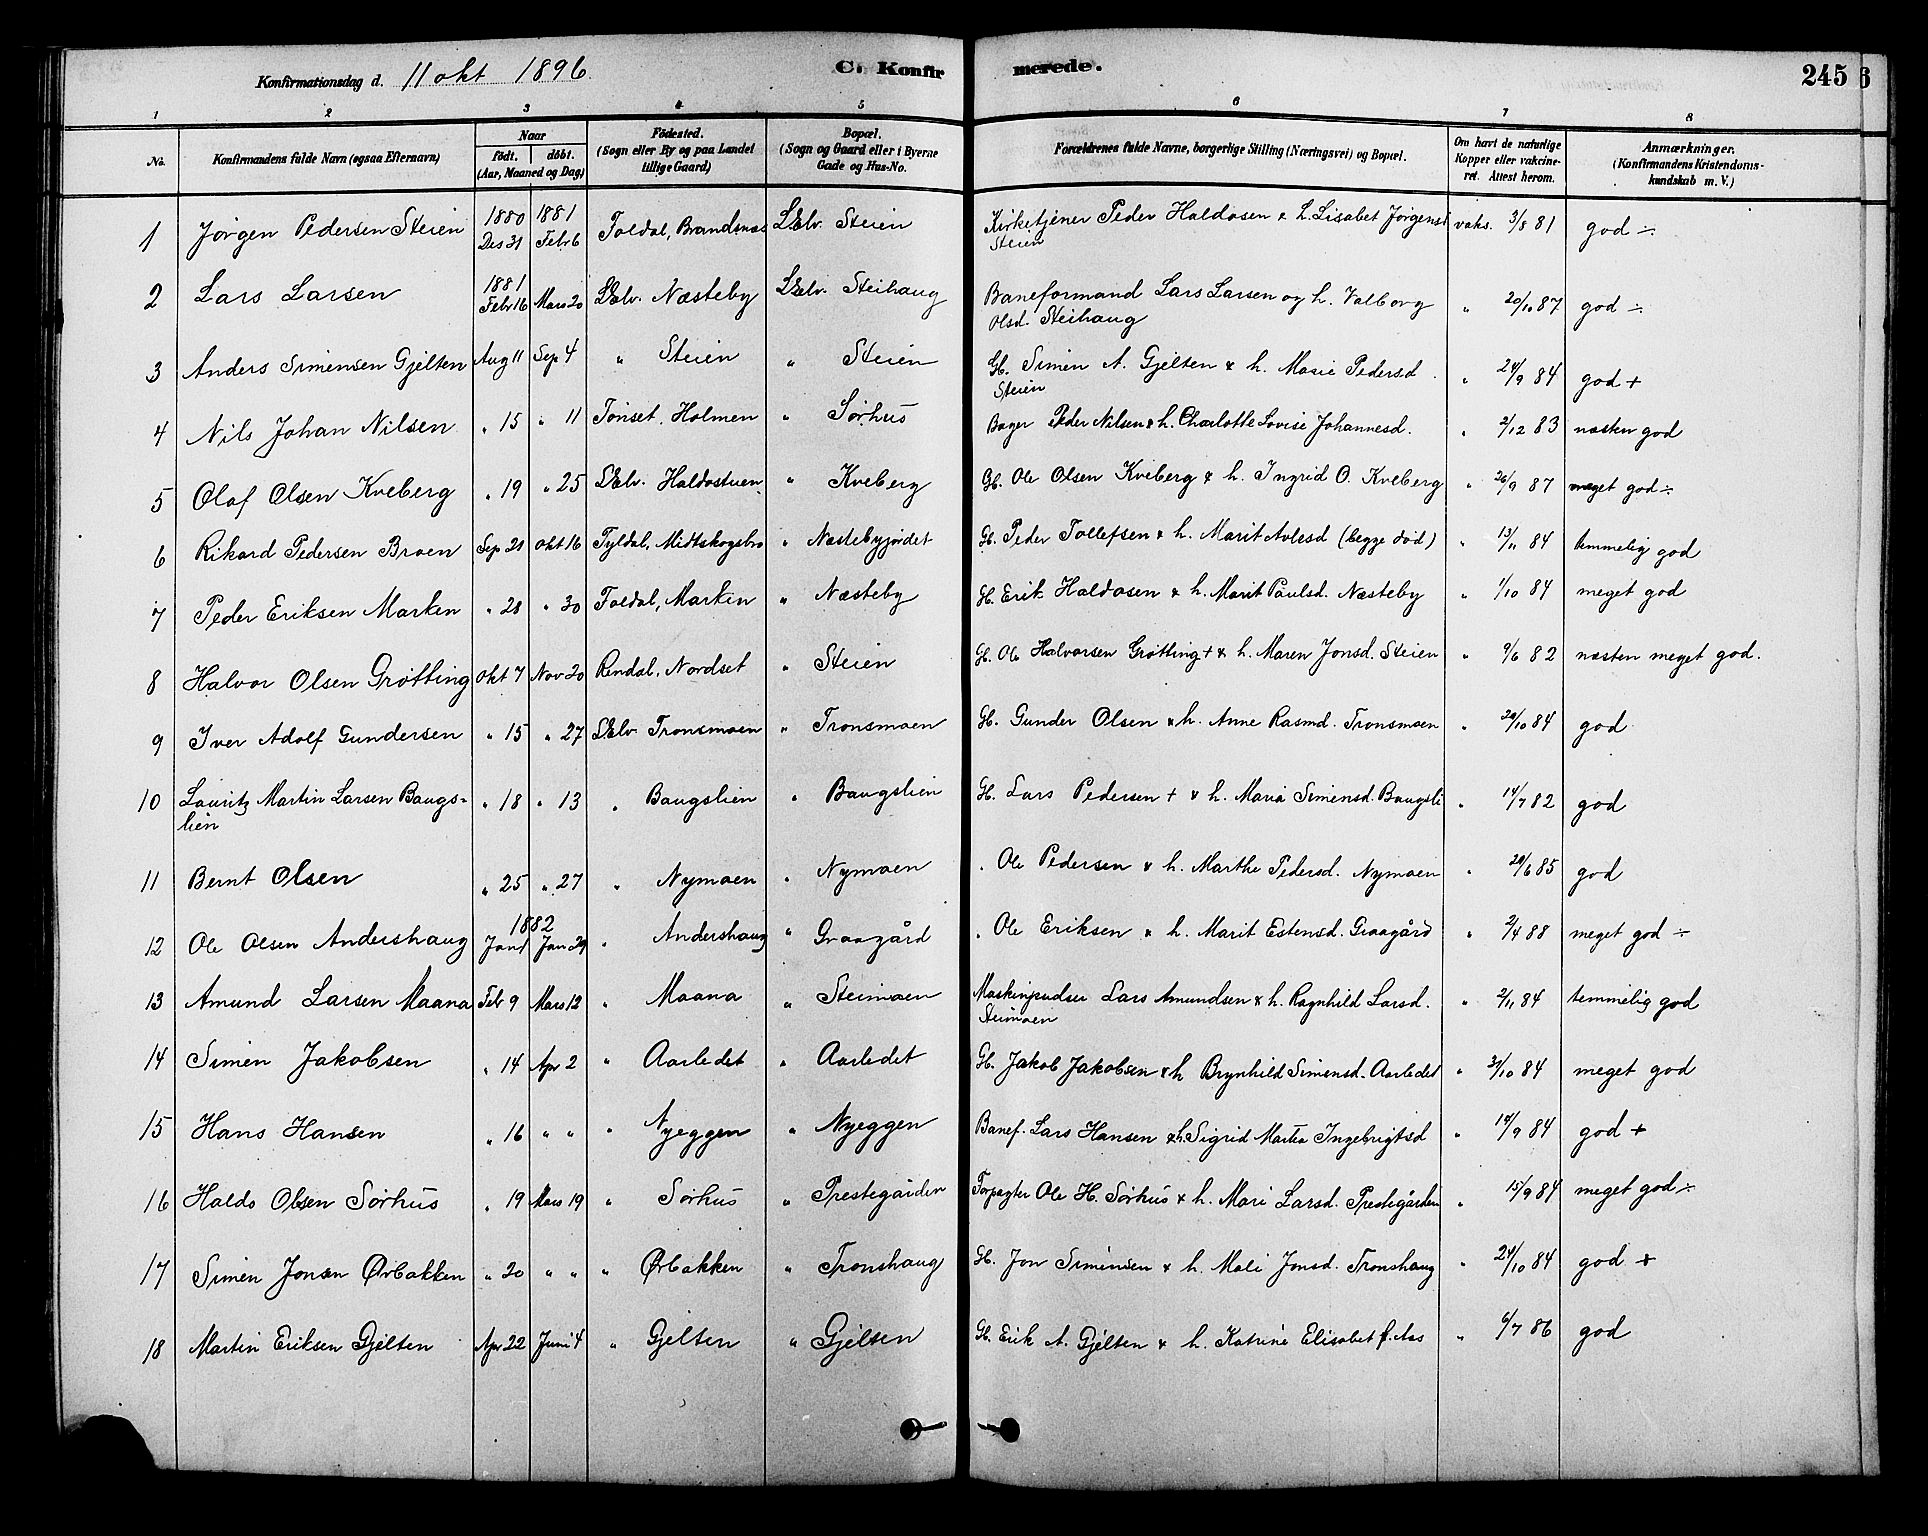 Konfirmationsdag d. 11 okt 1896. C. Konfirmerede. 245
1 2 3 4 5 6 7 8
No. Konfirmandens fulde Navn (ogsaa Efternavn) Naar födt. döbt. (Aar, Maaned og Dag) Födested. (Sogn eller By og paa Landet tillige Gaard) Bopæl. (Sogn og Gaard eller i Byerne Gade og Hus-No. Forældrenes fulde Navne, borgerlige Stilling (Næringsvei) og Bopæl. Om havt de naturlige Kopper eller vakcineret. Attest herom. Anmærkninger. (Konfirmandens Kristendomskundskab m. V.)
1 Jörgen Pedersen Steien 1880 Des 31 1881 Febr 6 Foldal, Brandsnæs L.Elv. Steien Kirketjener Peder Haldosen & h. Lisabet Jörgensd Steien vaks. 3/8 81 god ÷
2 Lars Larsen 1881 Febr 16 Mars 20 L.Elv. Næsteby L.Elv. Steihaug Baneformand Lars Larsen og h. Valborg Olsd. Steihaug " 20/10 87 god ÷
3 Anders Simensen Gjelten Aug 11 Sep 4 " Steien " Steien Gb. Simen A. Gjelten & h. Marie Pedersd. Steien " 24/9 84 god +
4 Nils Johan Nilsen " 15 " 11 Tönset, Holmen " Sörhus Bager Peder Nilsen & h. Charlotte Lovise Johannesd. " 2/12 83 næsten god
5 Olaf Olsen Kveberg " 19 " 25 L.Elv. Haldostuen " Kveberg Gb. Ole Olsen Kveberg & h. Ingrid O. Kveberg " 26/9 87 meget god ÷
6 Rikard Pedersen Broen Sep 21 Okt 16 Tyldal, Midtskogsbro " Næstebyjordet Gb. Peder Tollefsen & h. Marit (begge död) " 13/11 84 temmelig god
7 Peder Eriksen Marken " 28 " 30 Foldal, Marken " Næsteby Gb. Erik Haldosen & h. Marit Paulsd. Næsteby " 1/10 84 meget god
8 Halvor Olsen Grötting Okt 7 Nov 20 Rendal, Nordset " Steien Gb. Ole Halvorsen Grötting + & h. Maren Jonsd. Steien " 9/6 82 næsten meget god.
9 Iver Adolf Gundersen " 15 " 27 L.Elv. Tronsmoen " Tronsmoen Gb. Gunder Olsen & h. Anne Rasmd. Tronsmoen " 20/10 84 god
10 Lauritz Martin Larsen Baugslien " 18 " 13 " Baugslien " Baugslien Gb. Lars Pedersen + & h. Maria Simensd. Baugsli " 14/7 82 god
11 Bernt Olsen " 25 " 27 " Nymoen " Nymoen " Ole Pedersen & h. Marthe Pedersd. Nymoen " 20/6 85 god
12 Ole Olsen Andershaug 1882 Jan 1 Jan 29 " Andershaug " Graagård " Ole Eriksen & h. Marit Estensd. Graagård " 2/4 88 meget god ÷
13 Amund Larsen Maana Febr 9 Mars 12 " Maana " Steimoen Maskinpudser Lars Amundsen & h. Ragnhild Larsd. Steimoen " 2/11 84 temmelig god
14 Simen Jakobsen " 14 Apr 2 " Aarledet " Aarledet Gb. Jakob Jakobsen & h. Brynhild Simensd. Aarledet " 31/10 84 meget god
15 Hans Hansen " 16 " " " Nyeggen " Nyeggen Banef. Lars Hansen & h. Sigrid Martea Ingebrigtsd " 14/9 84 god +
16 Haldo Olsen Sörhus " 19 Mars 19 " Sörhus " Prestegården Forpagter Ole H. Sörhus & h. Mari Larsd. Prestegården " 15/9 84 meget god ÷
17 Simen Jonsen Ørbakken " 20 " " " Ørbakken " Tronshaug Gb. Jon Simensen & h. Mali Jonsd. Tronshaug " 24/10 84 god +
18 Martin Eriksen Gjelten Apr 22 Juni 4 " Gjelten " Gjelten Gb. Erik A. Gjelten & h. Katrine Elisabet f. Aas " 6/7 86 god